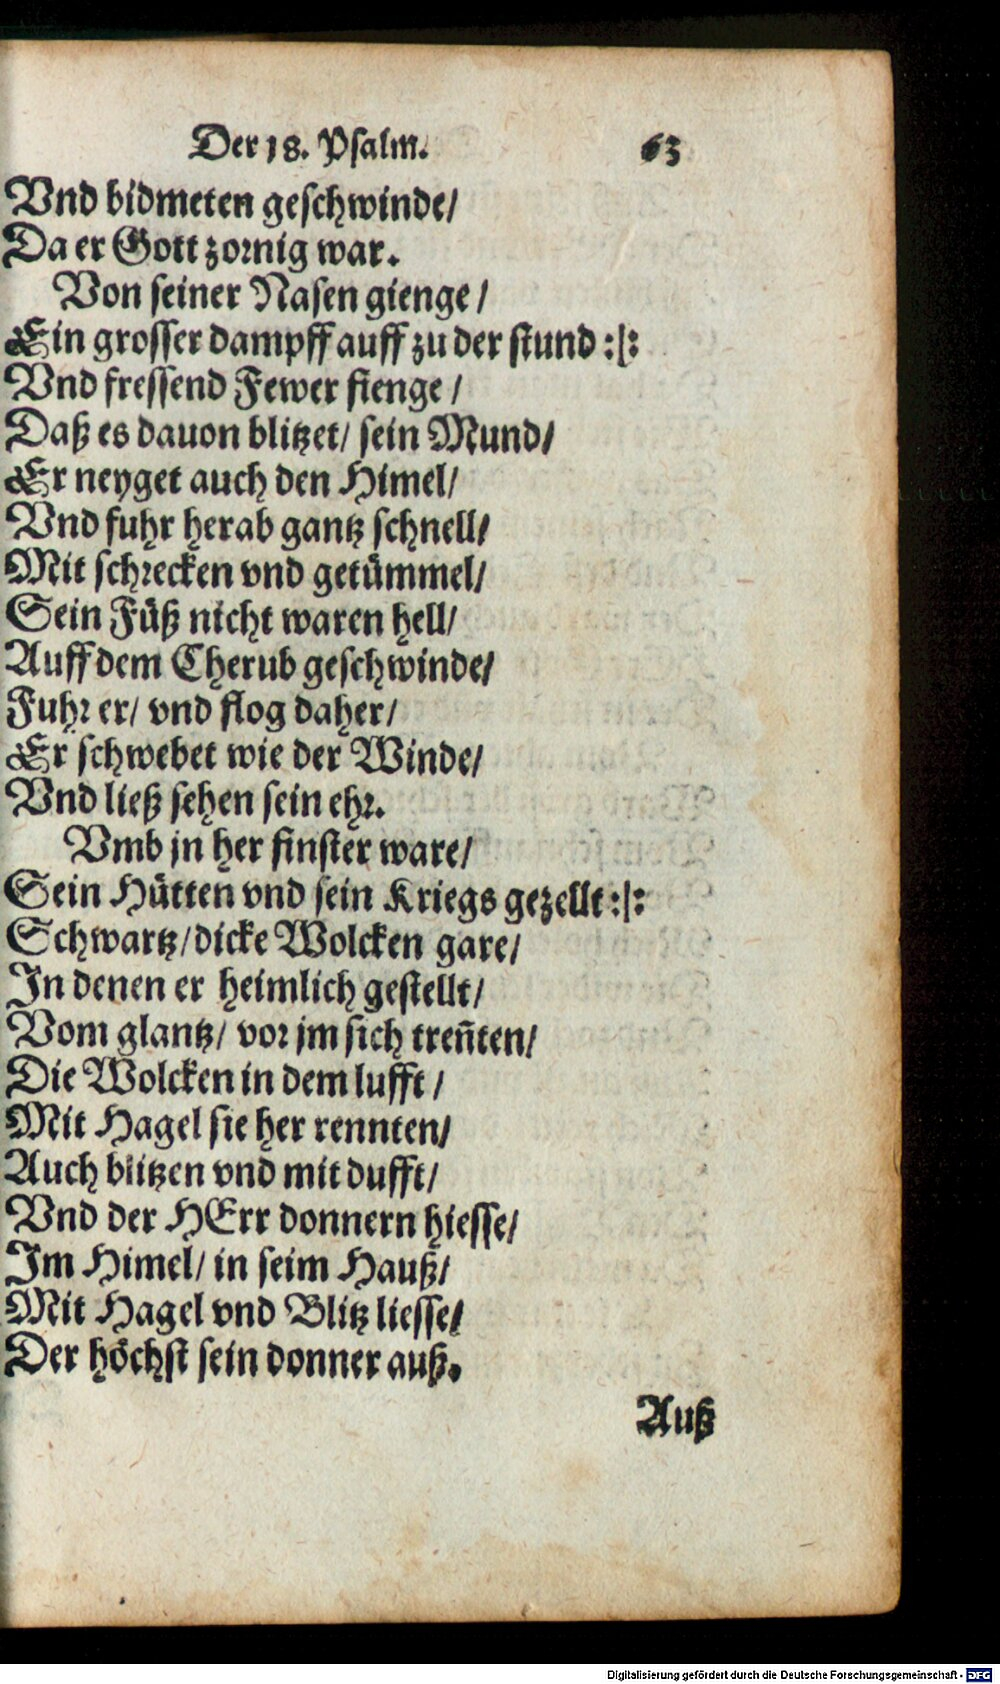 Der 18. Psalm. 63
Vnd bidmeten geschwinde/
Da er Gott zornig war.
Von seiner Nasen gienge/
Ein grosser dampff auff zu der stund :|:
Vnd fressend Fewer fienge/
Daß es dauon blitzet/ sein Mund/
Er neyget auch den Himel/
Vnd fuhr herab gantz schnell/
Mit schrecken vnd getümmel/
Sein Füß nicht waren hell/
Auff dem Cherub geschwinde/
Fuhr er/ vnd flog daher/
Er schwebet wie der Winde/
Vnd ließ sehen sein ehr.
Vmb jn her finster ware/
Sein Hütten vnd sein Kriegs gezellt :|:
Schwartz/ dicke Wolcken gare/
In denen er heimlich gestellt/
Vom glantz/ vor jm sich treñten/
Die Wolcken in dem lufft/
Mit Hagel sie her rennten/
Auch blitzen vnd mit dufft/
Vnd der HErr donnern hiesse/
Im Himel/ in seim Hauß/
Mit Hagel vnd Blitz liesse/
Der höchst sein donner auß.
Auß
Digitalisierung gefördert durch die Deutsche Forschungsgemeinschaft - DFG